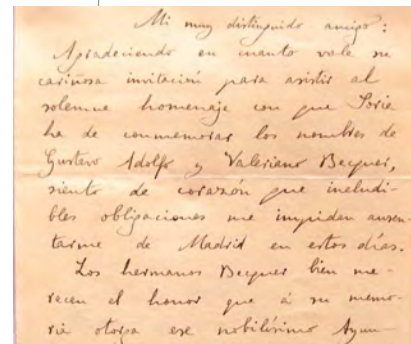 Mi muy distinguido amigo:
Agradeciendo en cuanto vale su
cariñosa invitación para asistir al
solemne homenaje con que Soria
ha de conmemorar los nombres de
Gustavo Adolfo y Valeriano Becquer,
siento de corazón que ineludi-
bles obligaciones me impidan ausen-
tarme de Madrid en estos días.
Los hermanos Becquer bien me-
recen el honor que á su memo-
ria otorga ese nobilísimo Ayun-